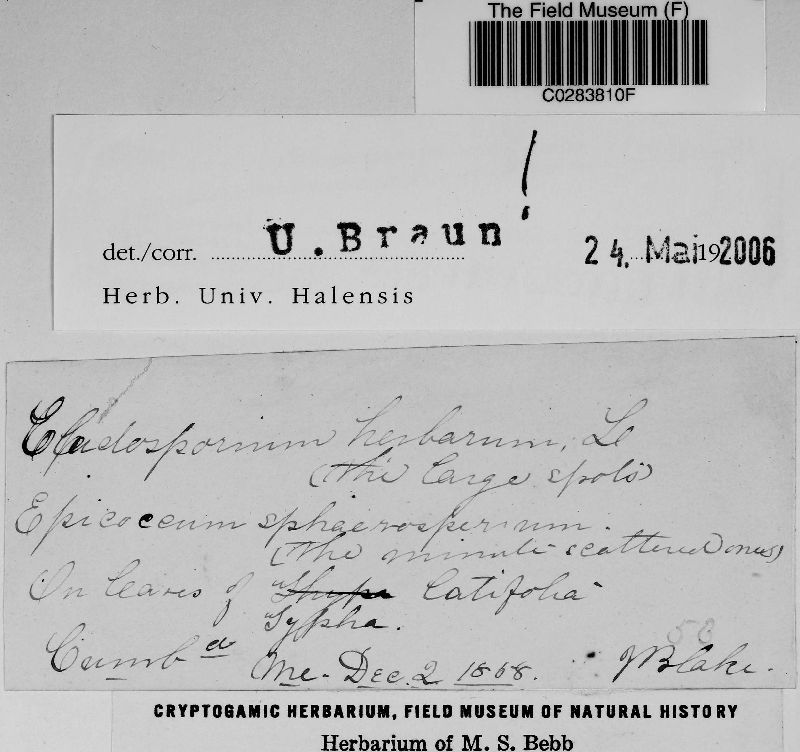 The Field Museum (F)
C0283810F
!
det./corr. U. Braun 24. Mai 19 2006
Herb. Univ. Halensis
Cladosporium herbarum, Lk
(the large spots)
Epicoccum sphaerospermum.
(the minute scattered ones)
On leaves of Thypa latifolia
Typha.
Cumbd Me. Dec. 2 1868. J Blake.
56
CRYPTOGAMIC HERBARIUM, FIELD MUSEUM OF NATURAL HISTORY
Herbarium of M. S. Bebb